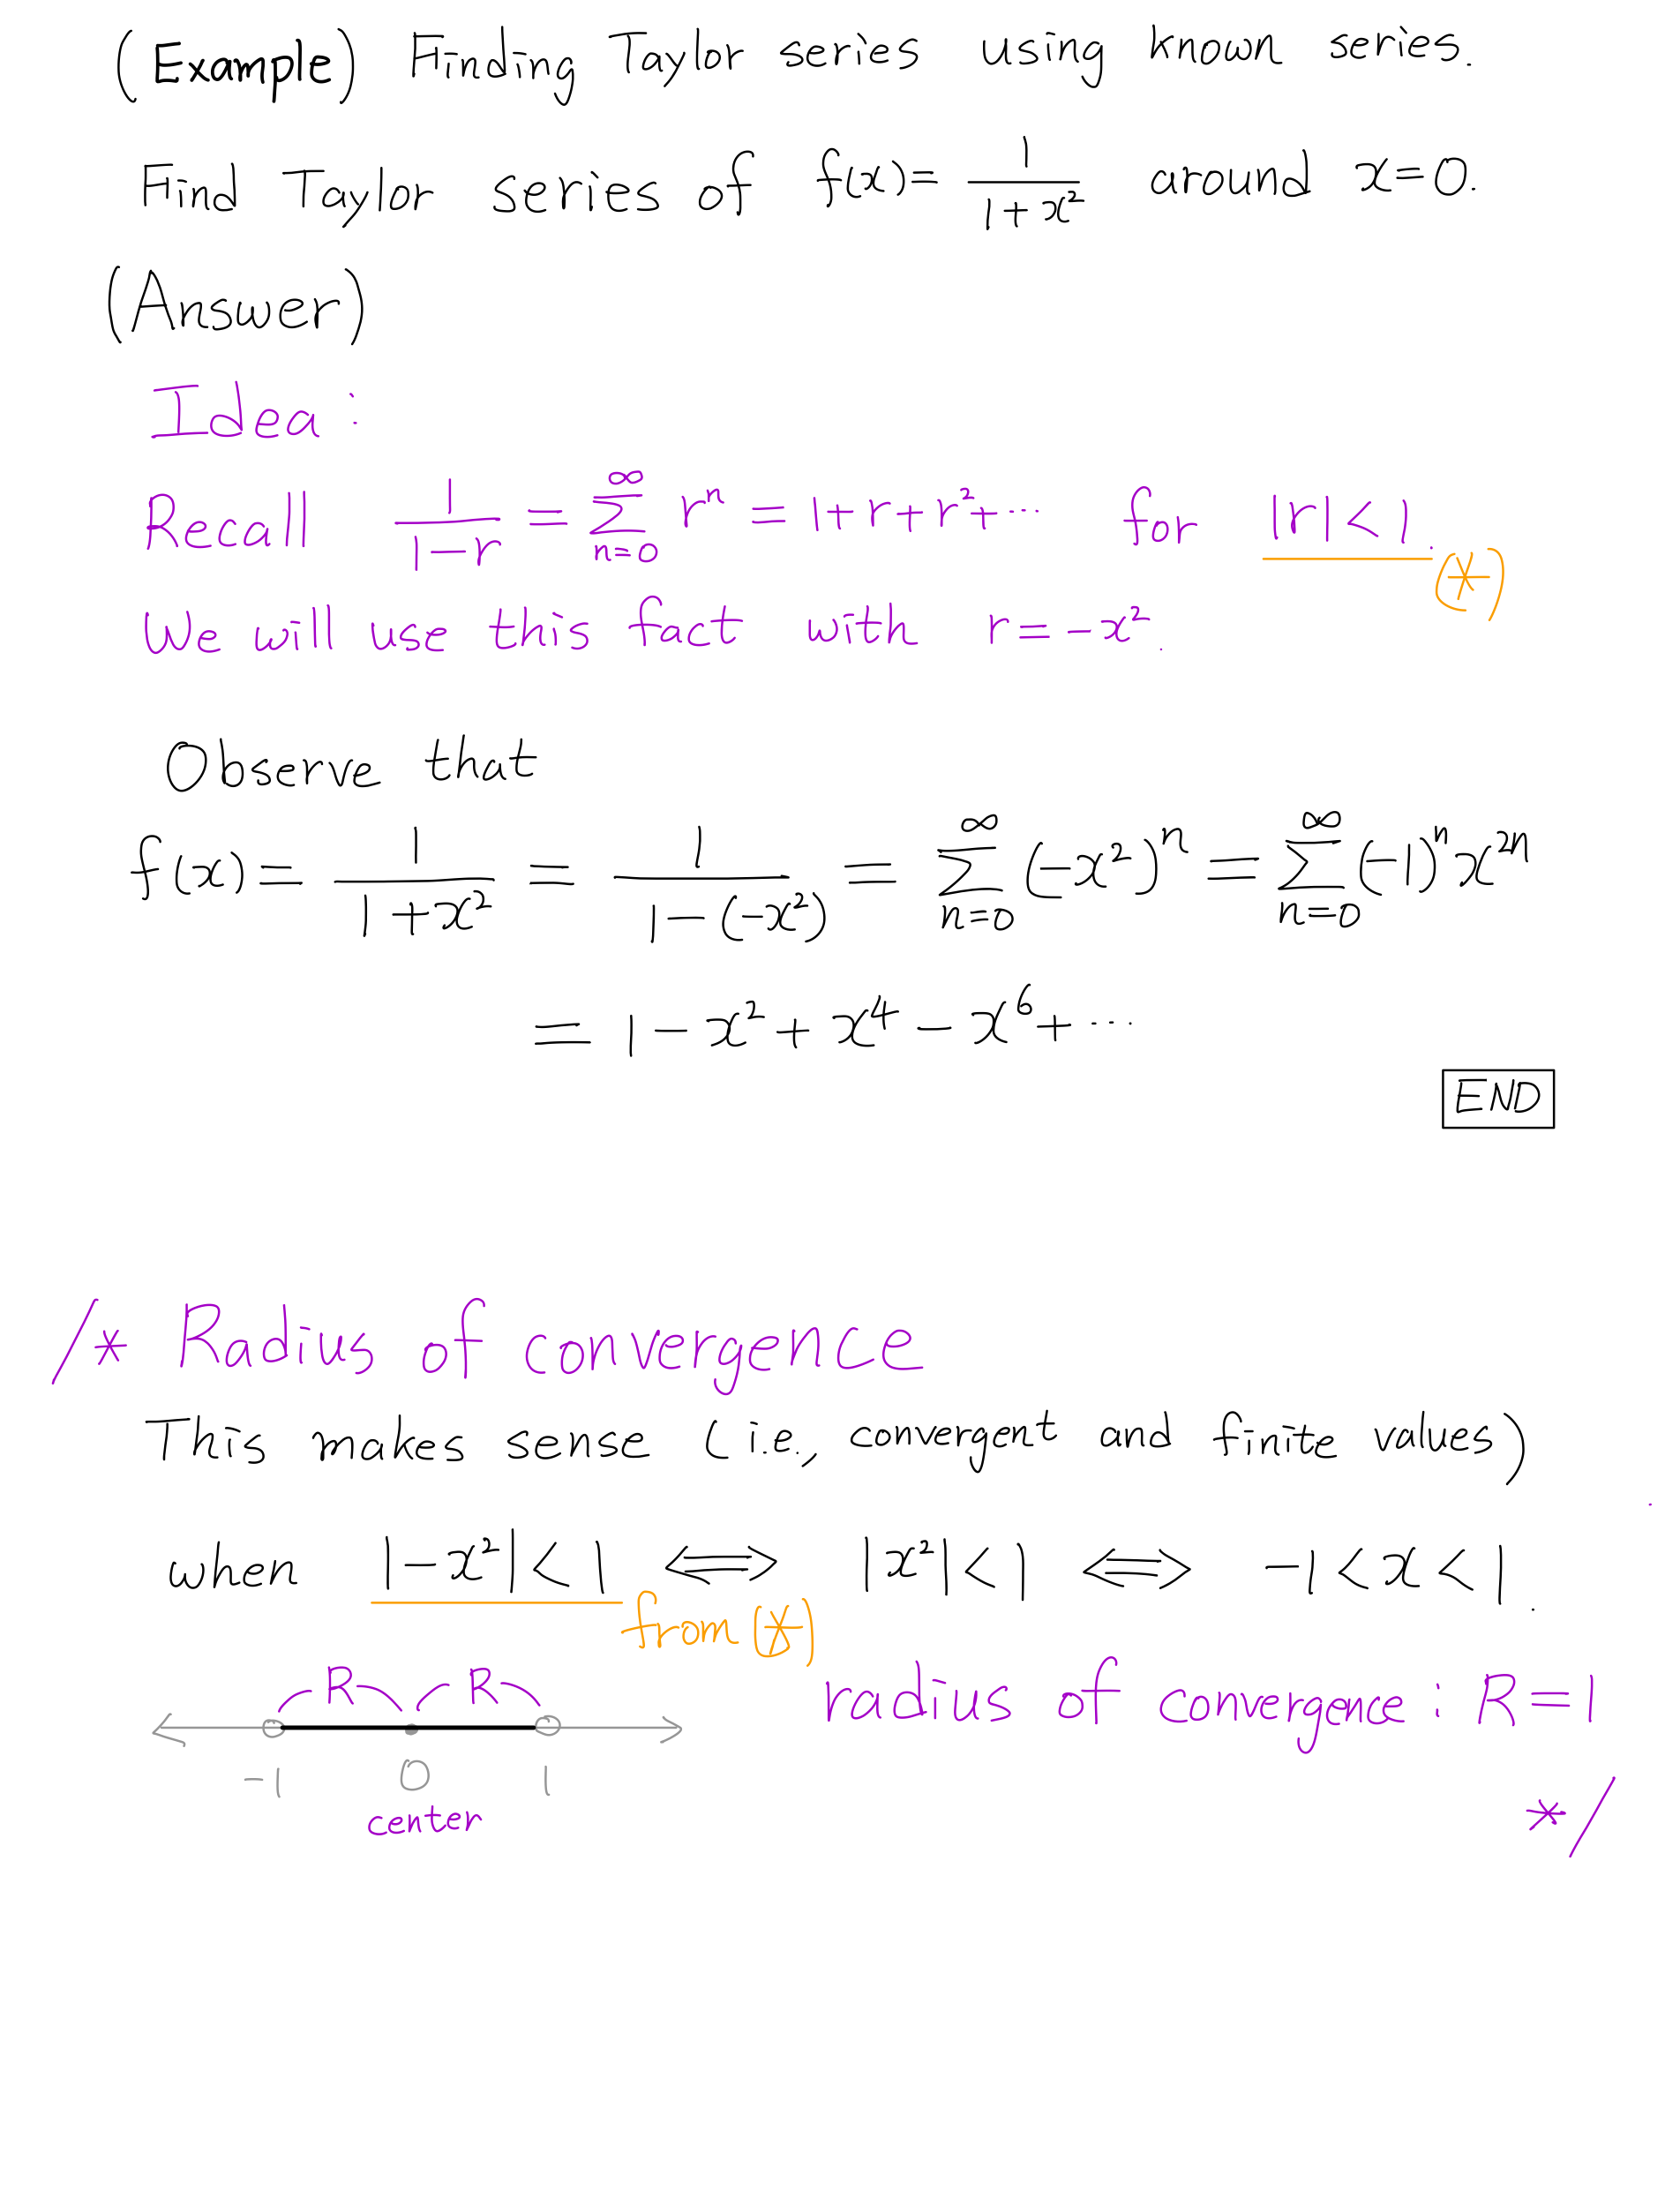 (Example) Finding Taylor series using known series.
Find Taylor series of f(x) = 1/(1+x²) around x=0.
(Answer)
Idea :
Recall 1/(1-r) = ∑_{n=0}^{∞} rⁿ = 1+r+r²+··· for |r|<1. (*)
We will use this fact with r=-x².
Observe that
f(x) = 1/(1+x²) = 1/(1-(-x²)) = ∑_{n=0}^{∞} (-x²)ⁿ = ∑_{n=0}^{∞} (-1)ⁿ x²ⁿ
= 1 - x² + x⁴ - x⁶ + ···
END
/* Radius of convergence
This makes sense (i.e., convergent and finite values)
when |-x²|<1 ⟺ |x²|<1 ⟺ -1<x<1.
from (*)
R R
radius of convergence : R=1
-1 0 1
center
*/